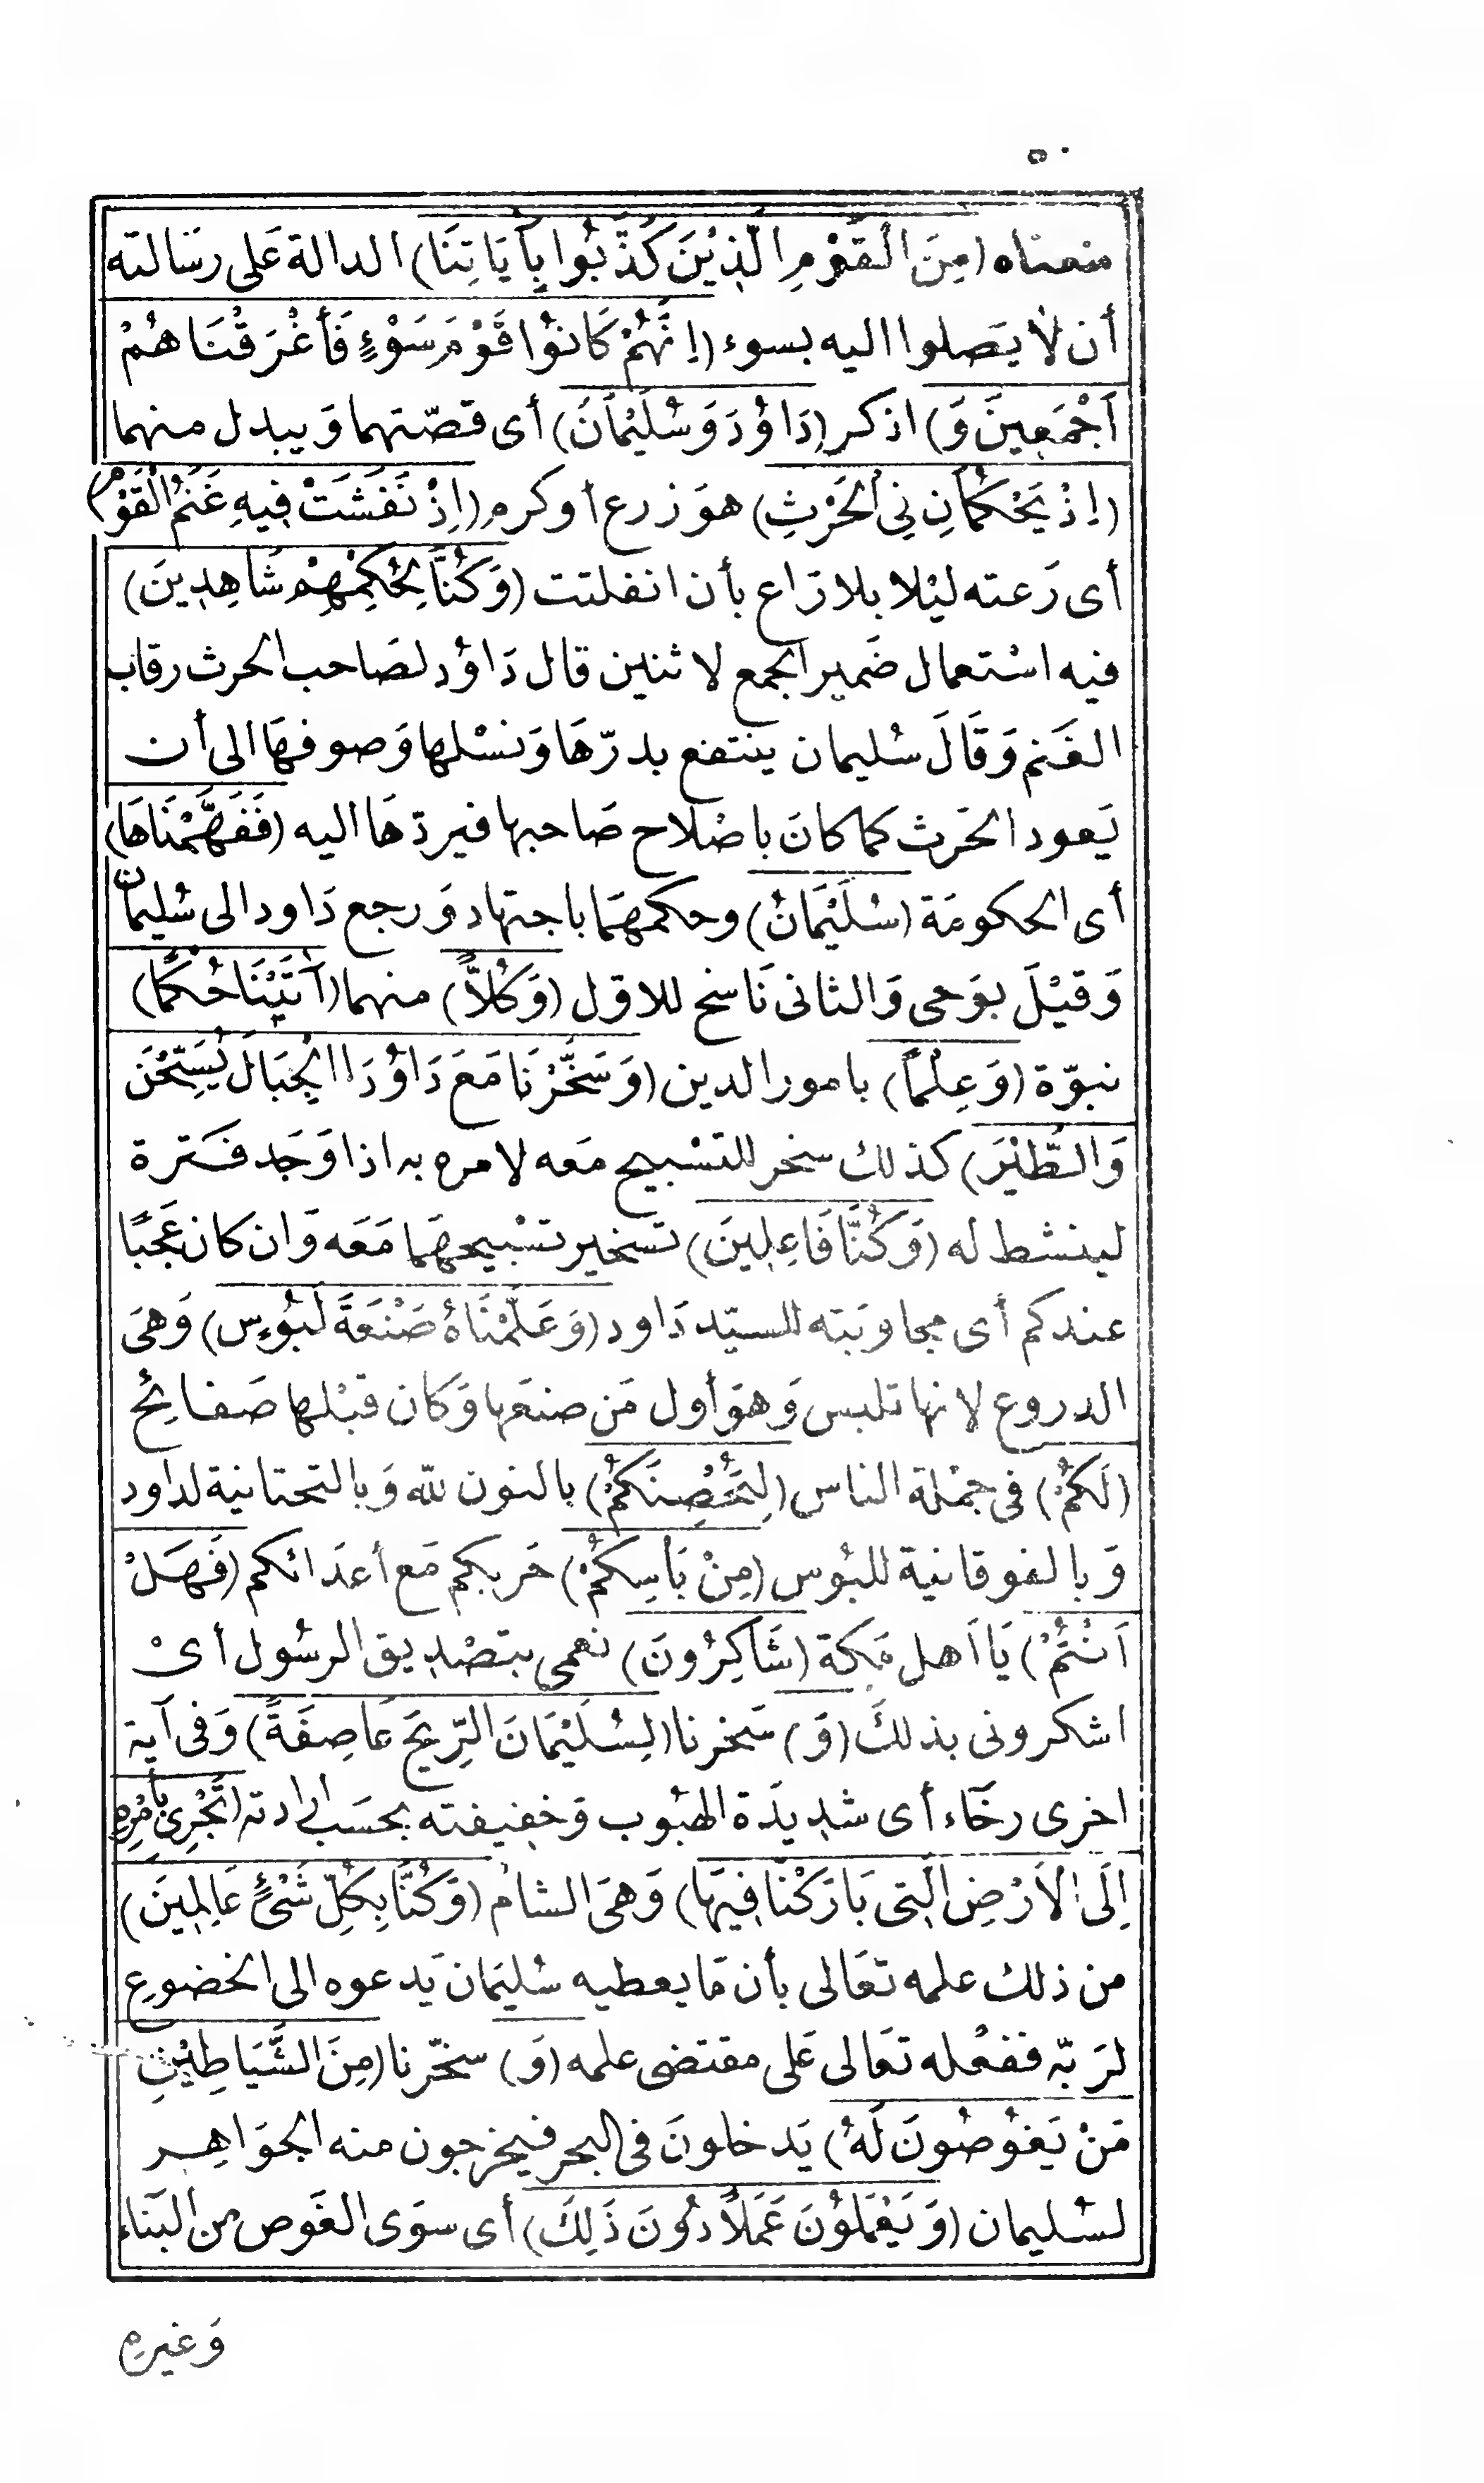 ٥٠
منعناه (مِنَ الْقَوْمِ الَّذِيْنَ كَذَّبُوا بِآيَاتِنَا) الدالة عَلى رسَالته
أن لا يَصلوا اليه بسوء (اِنَّهُمْ كَانُوْا قَوْمَ سَوْءٍ فَأَغْرَقْنَاهُمْ
اَجْمَعِينَ وَ) اذكر (دَاؤُدَ وَسُلَيْمَانَ) أى قصّتهما وَيبدل منهما
(اِذْ يَحْكُمَانِ فِى الْحَرْثِ) هوَ زرع أو كرم (اِذْ نَفَشَتْ فِيهِ غَنَمُ الْقَوْمِ)
أى رَعته ليْلا بلا رَاع بأن انفلتت (وَكُنَّا لِحُكْمِهِمْ شَاهِدِينَ)
فيه اسْتعمال ضَمير الجمع لاثنين قال دَاؤد لصَاحب الحرث رقاب
الغَنم وَقَالَ سُليمان ينتفع بدرّهَا وَنسْلها وَصوفهَا الى أن
يَعود الحَرث كما كانَ باصْلاح صَاحبها فيردّهَا اليه (فَفَهَّمْنَاهَا)
أى الحكومَة (سُلَيْمَانَ) وحكمهمَا باجتهاد وَرجع دَاود الى سُليمان
وَقيْلَ بوَحى وَالثانى نَاسخ للاوّل (وَكُلاًّ) منهما (آتَيْنَا حُكْمًا)
نبوّة (وَعِلْمًا) بامور الدين (وَسَخَّرْنَا مَعَ دَاؤُدَ الْجِبَالَ يُسَبِّحْنَ
وَالطَّيْرَ) كذلك سخر للتسْبيح مَعه لامره به اذا وَجَد فَترة
لينشط له (وَكُنَّا فَاعِلِينَ) تسخير تسْبيحهمَا مَعَه وَان كان عَجَبًا
عندكم أى مجاوبَته للسيّد دَاود (وَعَلَّمْنَاهُ صَنْعَةَ لَبُوْسٍ) وَهىَ
الدروع لانها تلبس وَهوَ أول مَن صنعَها وَكان قبْلها صَفائِح
(لَكُمْ) فى جمْلة الناس (لِتُحْصِنَكُمْ) بالنون للّه وَبالتحتانية لداود
وَبالفوقانية للبُوس (مِنْ بَأْسِكُمْ) حَربكم مَع أعدَائكم (فَهَلْ
اَنْتُمْ) يَا اَهل مَكة (شَاكِرُونَ) نعمى بتصْديق الرسُول أىْ
اشكرونى بذلكَ (وَ) سَخرنا (لِسُلَيْمَانَ الرِّيحَ عَاصِفَةً) وَفى آية
اخرى رخَاء أى شديدَة الهبُوب وَخفيفته بحسَب ارادته (تَجْرِىْ بِأَمْرِهِ
اِلَى الْاَرْضِ الَّتِى بَارَكْنَا فِيْهَا) وَهىَ الشام (وَكُنَّا بِكُلِّ شَىْءٍ عَالِمِينَ)
من ذلك علمه تعَالى بأن مَا يعطيه سُليمَان يَدعوه الى الخضوع
لرَبّه ففعْله تعَالى عَلى مقتضى علمه (وَ) سخّرنا (مِنَ الشَّيَاطِيْنِ
مَنْ يَغُوْصُونَ لَهُ) يَدخلونَ فى البحر فيخرجون منه الجوَاهِر
لسُليمان (وَيَعْمَلُوْنَ عَمَلاً دُونَ ذَلِكَ) أى سوَى الغَوص من البنَاء
وَغيره